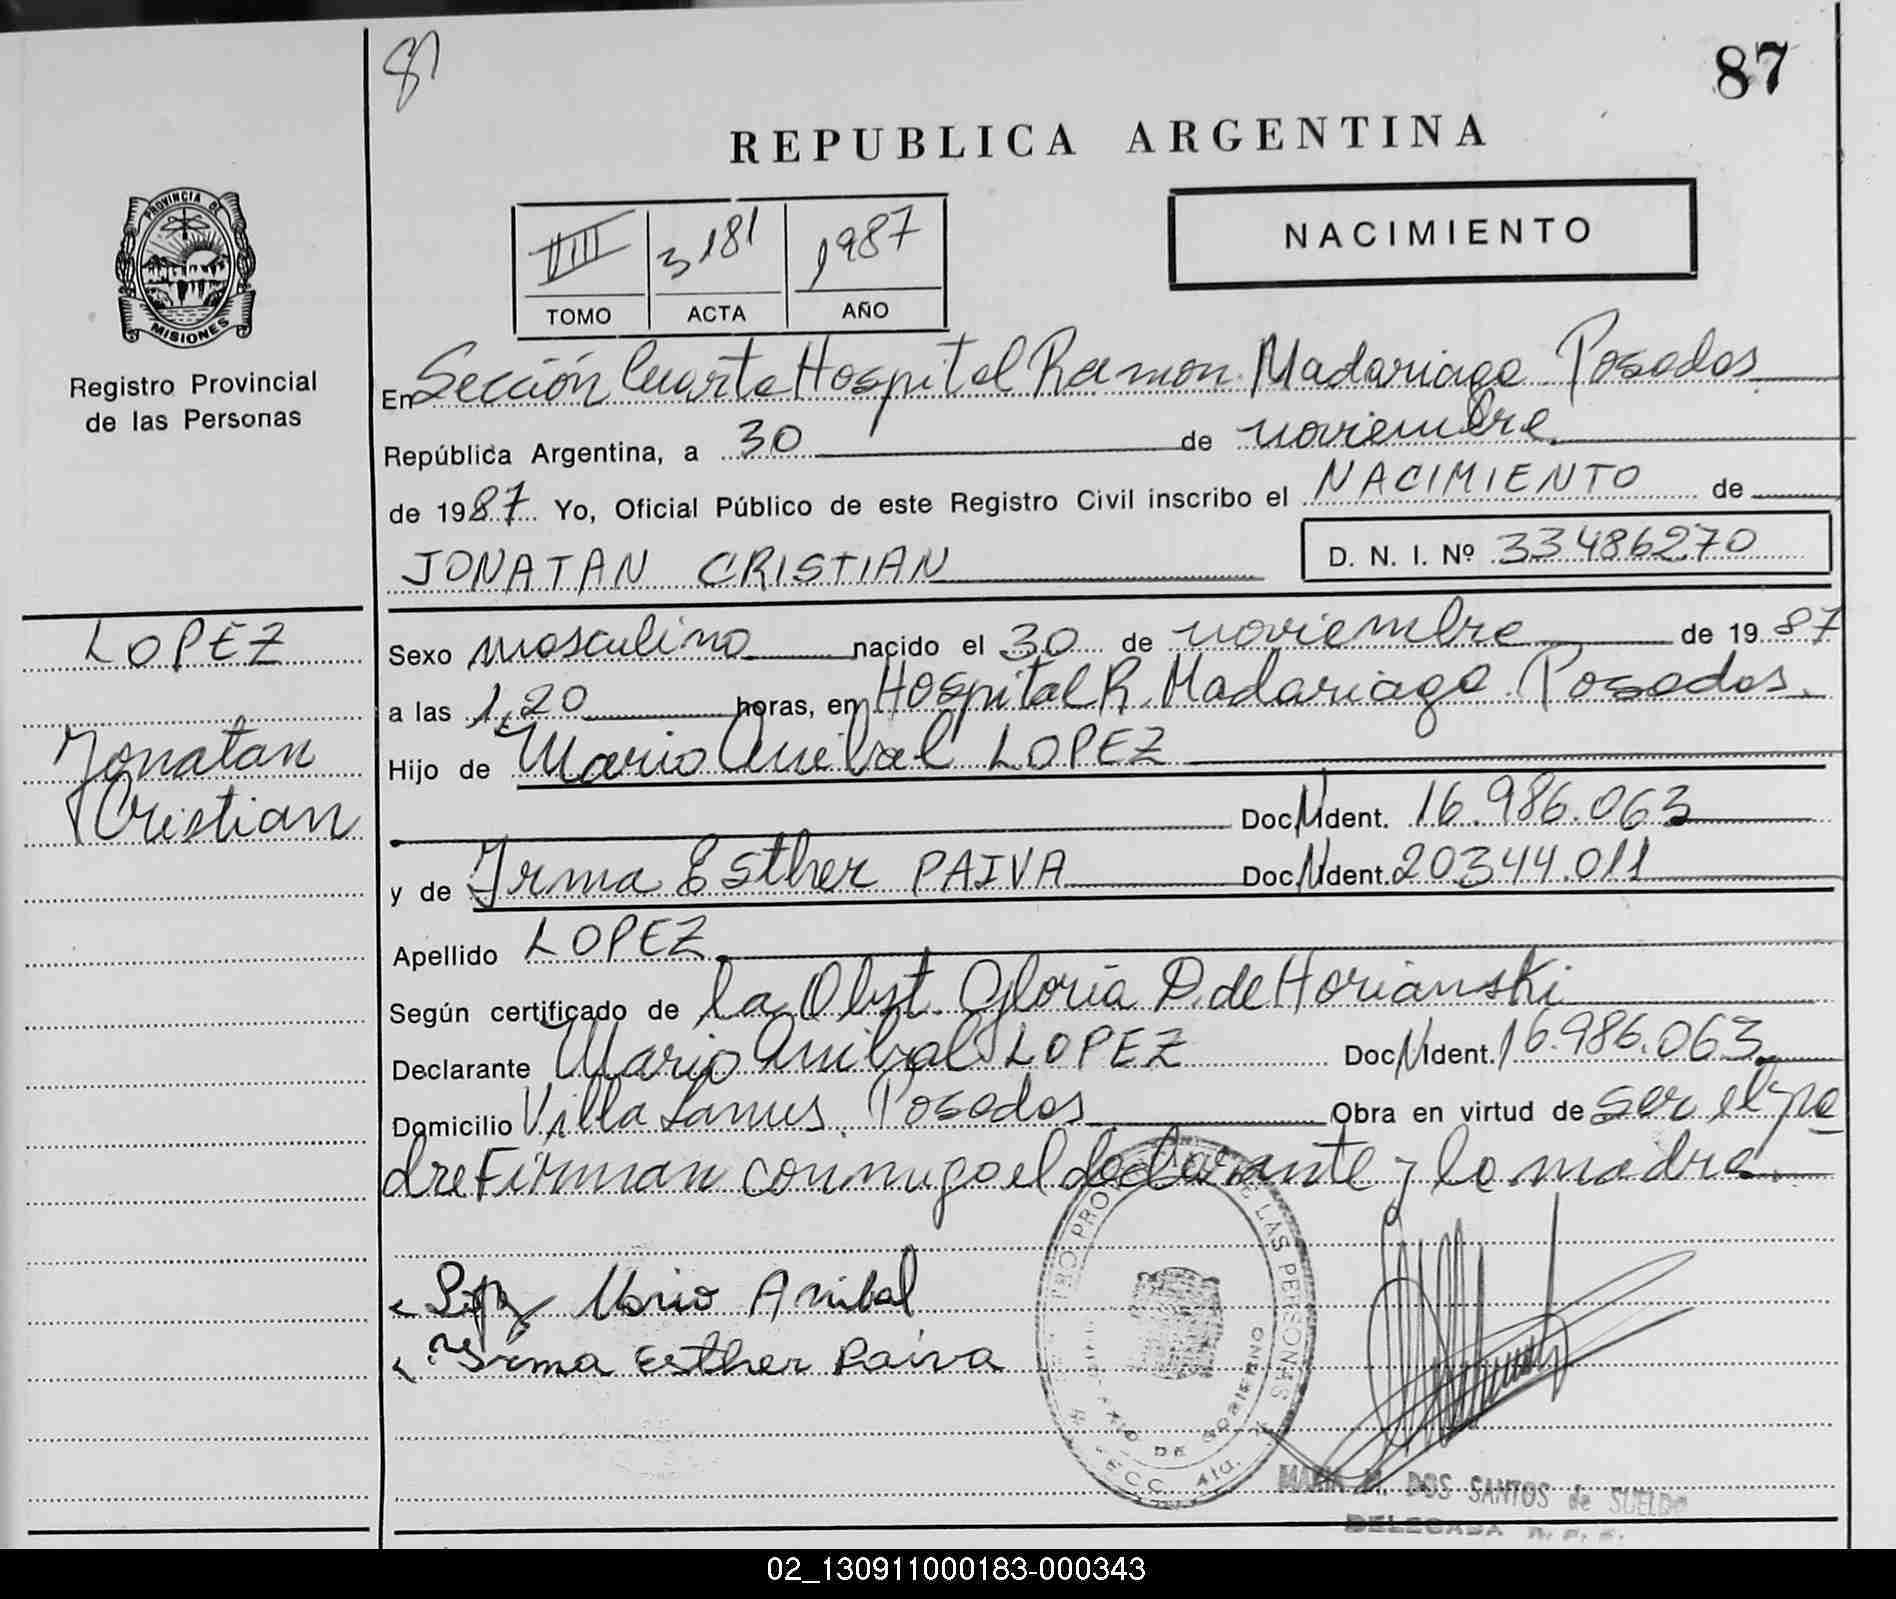 87
87
REPUBLICA ARGENTINA
PROVINCIA DE
MISIONES
Registro Provincial
de las Personas
VIII 3181 1987
TOMO ACTA AÑO
NACIMIENTO
En Sección Cuarta Hospital Ramon Madariaga Posadas
República Argentina, a 30 de noviembre
de 1987 Yo, Oficial Público de este Registro Civil inscribo el NACIMIENTO de
JONATAN CRISTIAN D. N. I. Nº 33486270
LOPEZ
Jonatan
Cristian
Sexo masculino nacido el 30 de noviembre de 1987
a las 1,20 horas, en Hospital R. Madariaga Posadas.
Hijo de Mario Anibal LOPEZ
Doc. Ident. 16.986.063
y de Irma Esther PAIVA Doc. Ident. 20344.011
Apellido LOPEZ
Según certificado de la Obst. Gloria D. de Horianski
Declarante Mario Anibal LOPEZ Doc. Ident. 16.986.063
Domicilio Villa Lanus. Posadas Obra en virtud de ser el pa
dre Firman conmigo el declarante y la madre.
Mario Anibal
Irma Esther Paiva
LAS PERSONAS
DE GOBIERNO
MARIA M. DOS SANTOS de SUELDO
DELEGADA R. P. P.
02_130911000183-000343